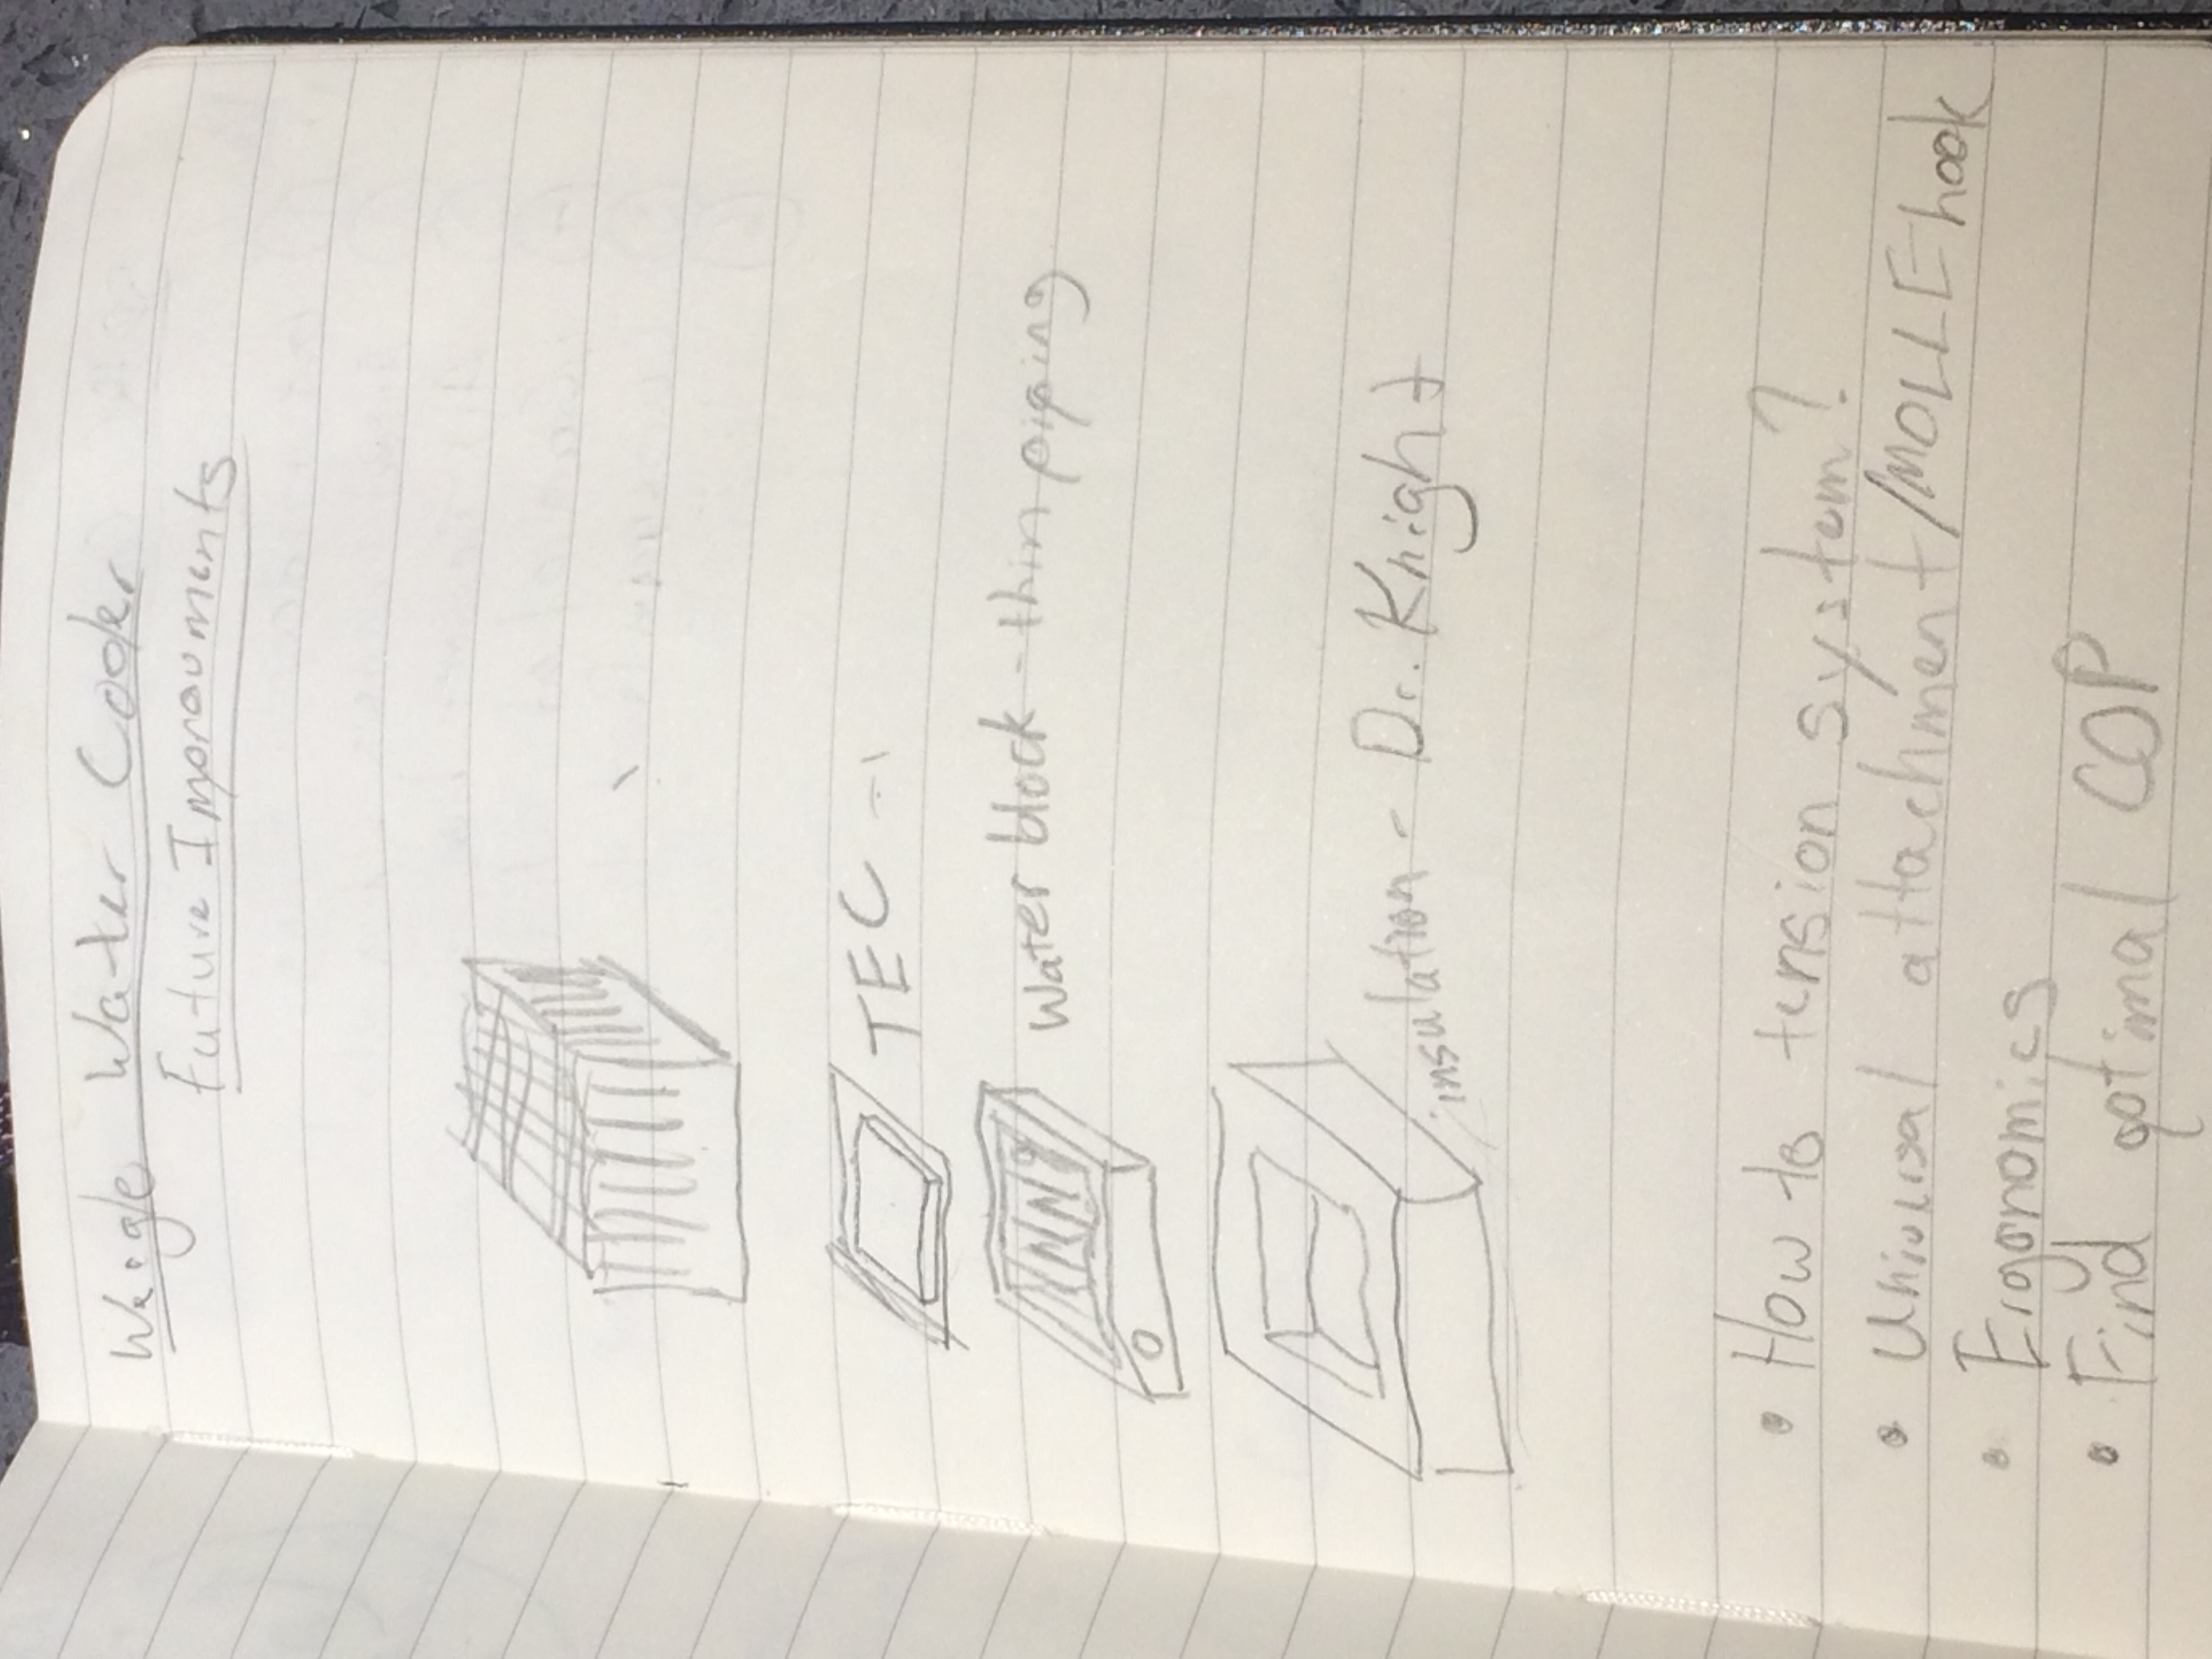 Weigle Water Cooler
Future Improvments
TEC
Water block - thin piping
insulation - Dr. Knight
• How to tension system?
• Universal attachment/MOLLE hook
• Ergonomics
• Find optimal COP